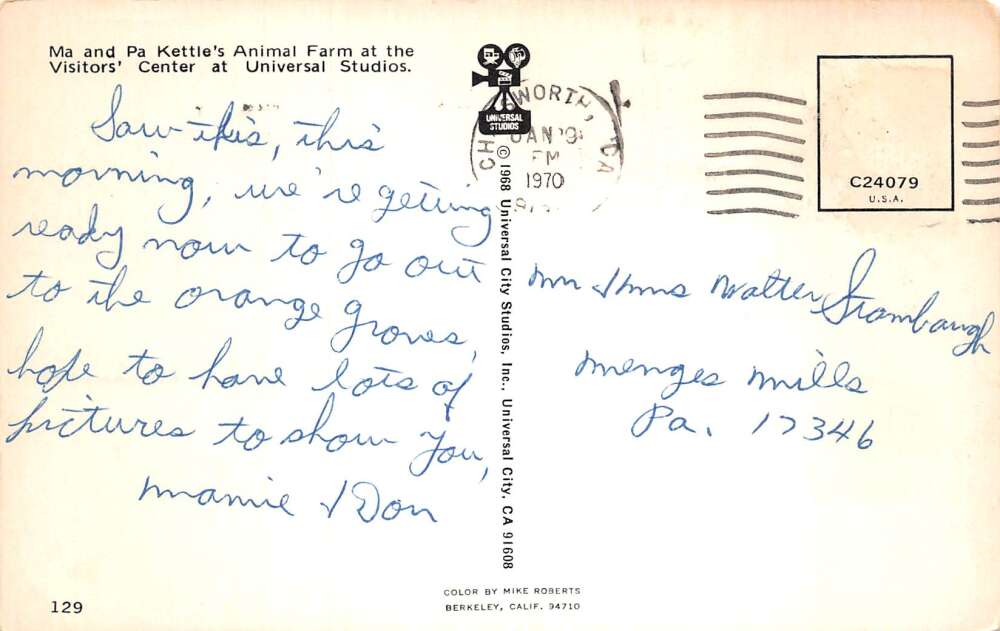 Ma and Pa Kettle's Animal Farm at the
Visitors' Center at Universal Studios.
Saw this, this
morning, we're getting
ready now to go out
to the orange groves,
hope to have lots of
pictures to show you,
Mamie & Don
129
UNIVERSAL
STUDIOS
© 1968 Universal City Studios, Inc., Universal City, CA 91608
WORTH, CA
JAN 9
PM
1970
C24079
U.S.A.
Mr & Mrs Walter Stambaugh
Menges Mills
Pa. 17346
COLOR BY MIKE ROBERTS
BERKELEY, CALIF. 94710